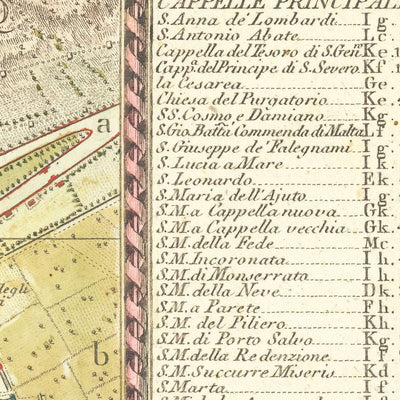 CAPPELLE PRINCIPALI
S. Anna de' Lombardi I g.
S. Antonio Abate L c.
Cappella del Tesoro di S. Gen.º K e.
Capp.ª del Principe di S. Severo K f.
la Cesarea G e.
Chiesa del Purgatorio K e.
SS. Cosmo e Damiano K g.
S. Gio. Batta Commenda di Malta L f.
S. Giuseppe de' Falegnami I g.
S. Lucia a Mare I k.
S. Leonardo E k.
S. Maria dell'Ajuto I g.
S. M. a Cappella nuova G k.
S. M. a Cappella vecchia G k.
S. M. della Fede M c.
S. M. Incoronata I h.
S. M. di Monserrato I h.
S. M. della Neve D k.
S. M. a Parete F h.
S. M. del Piliero K h.
S. M. di Porto Salvo K g.
S. M. della Redenzione I f.
S. M. Succurre Miseris K d.
S. Marta I f.
a
b
degli